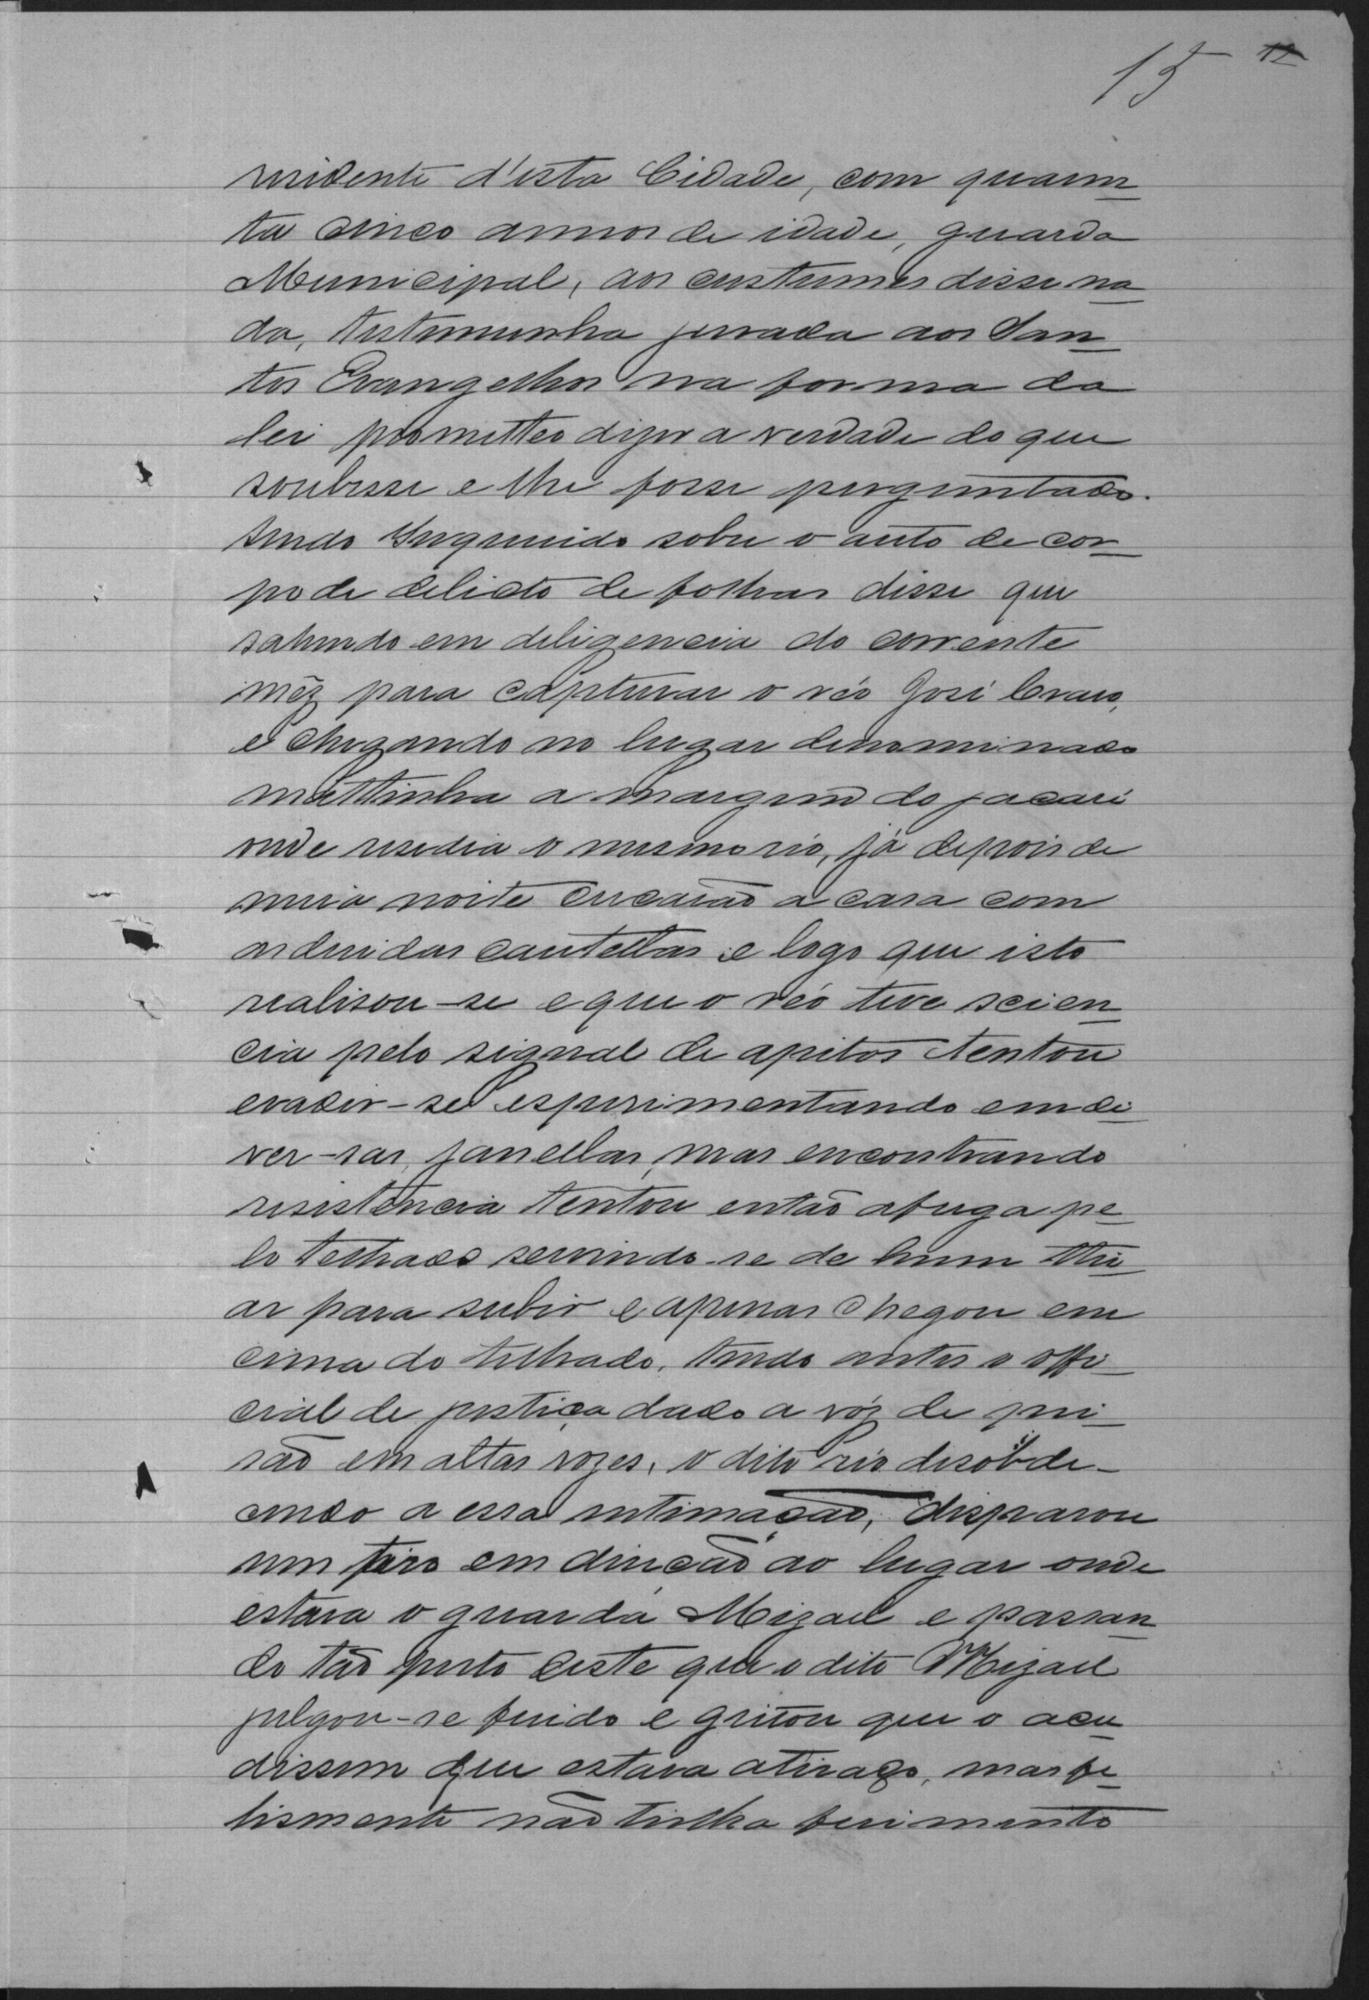 15 12
residente d'esta Cidade, com quaren
ta cinco annos de idade, guarda
Municipal, aos custumes disse na
da, testemunha jurada aos San
tos Evangelhos na forma da
lei prometteo dizer a verdade do que
soubesse e lhe fosse perguntado.
sendo Inquerido sobre o auto de cor
po de delicto de folhas disse que
sahindo em deligencia do corrente
mêz para capturar o réo José
e chegando no lugar denominado
mattinha a margem do jacaré
onde resedia o mesmo réo, já depois de
meia noite cercarão a casa com
as devidas cautellas e logo que isto
realisou-se e que o réo teve scien
cia pelo signal de apitos tentou
evadir-se esperimentando em di
ver-sas janellas, mas encontrando
resistencia tentou então a fuga pe
lo telhado servindo-se de hum
ar para subir e apenas chegou em
cima do telhado, tendo antes o offi
cial de justiça dado a vóz de pri
são em altas vozes, o dito réo desobde-
cendo a essa intimação, disparou
um tiro em direcão ao lugar onde
estava o guarda Mizael e passan
do tão perto deste que o dito Mizael
julgou-se ferido e gritou que o acu
dissem que estava atirado, mas fe
lismente não tinha ferimento